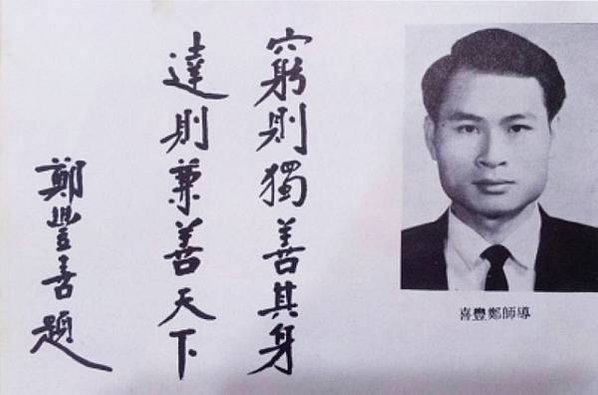 窮則獨善其身
達則兼善天下
鄭豐喜題
導師鄭豐喜